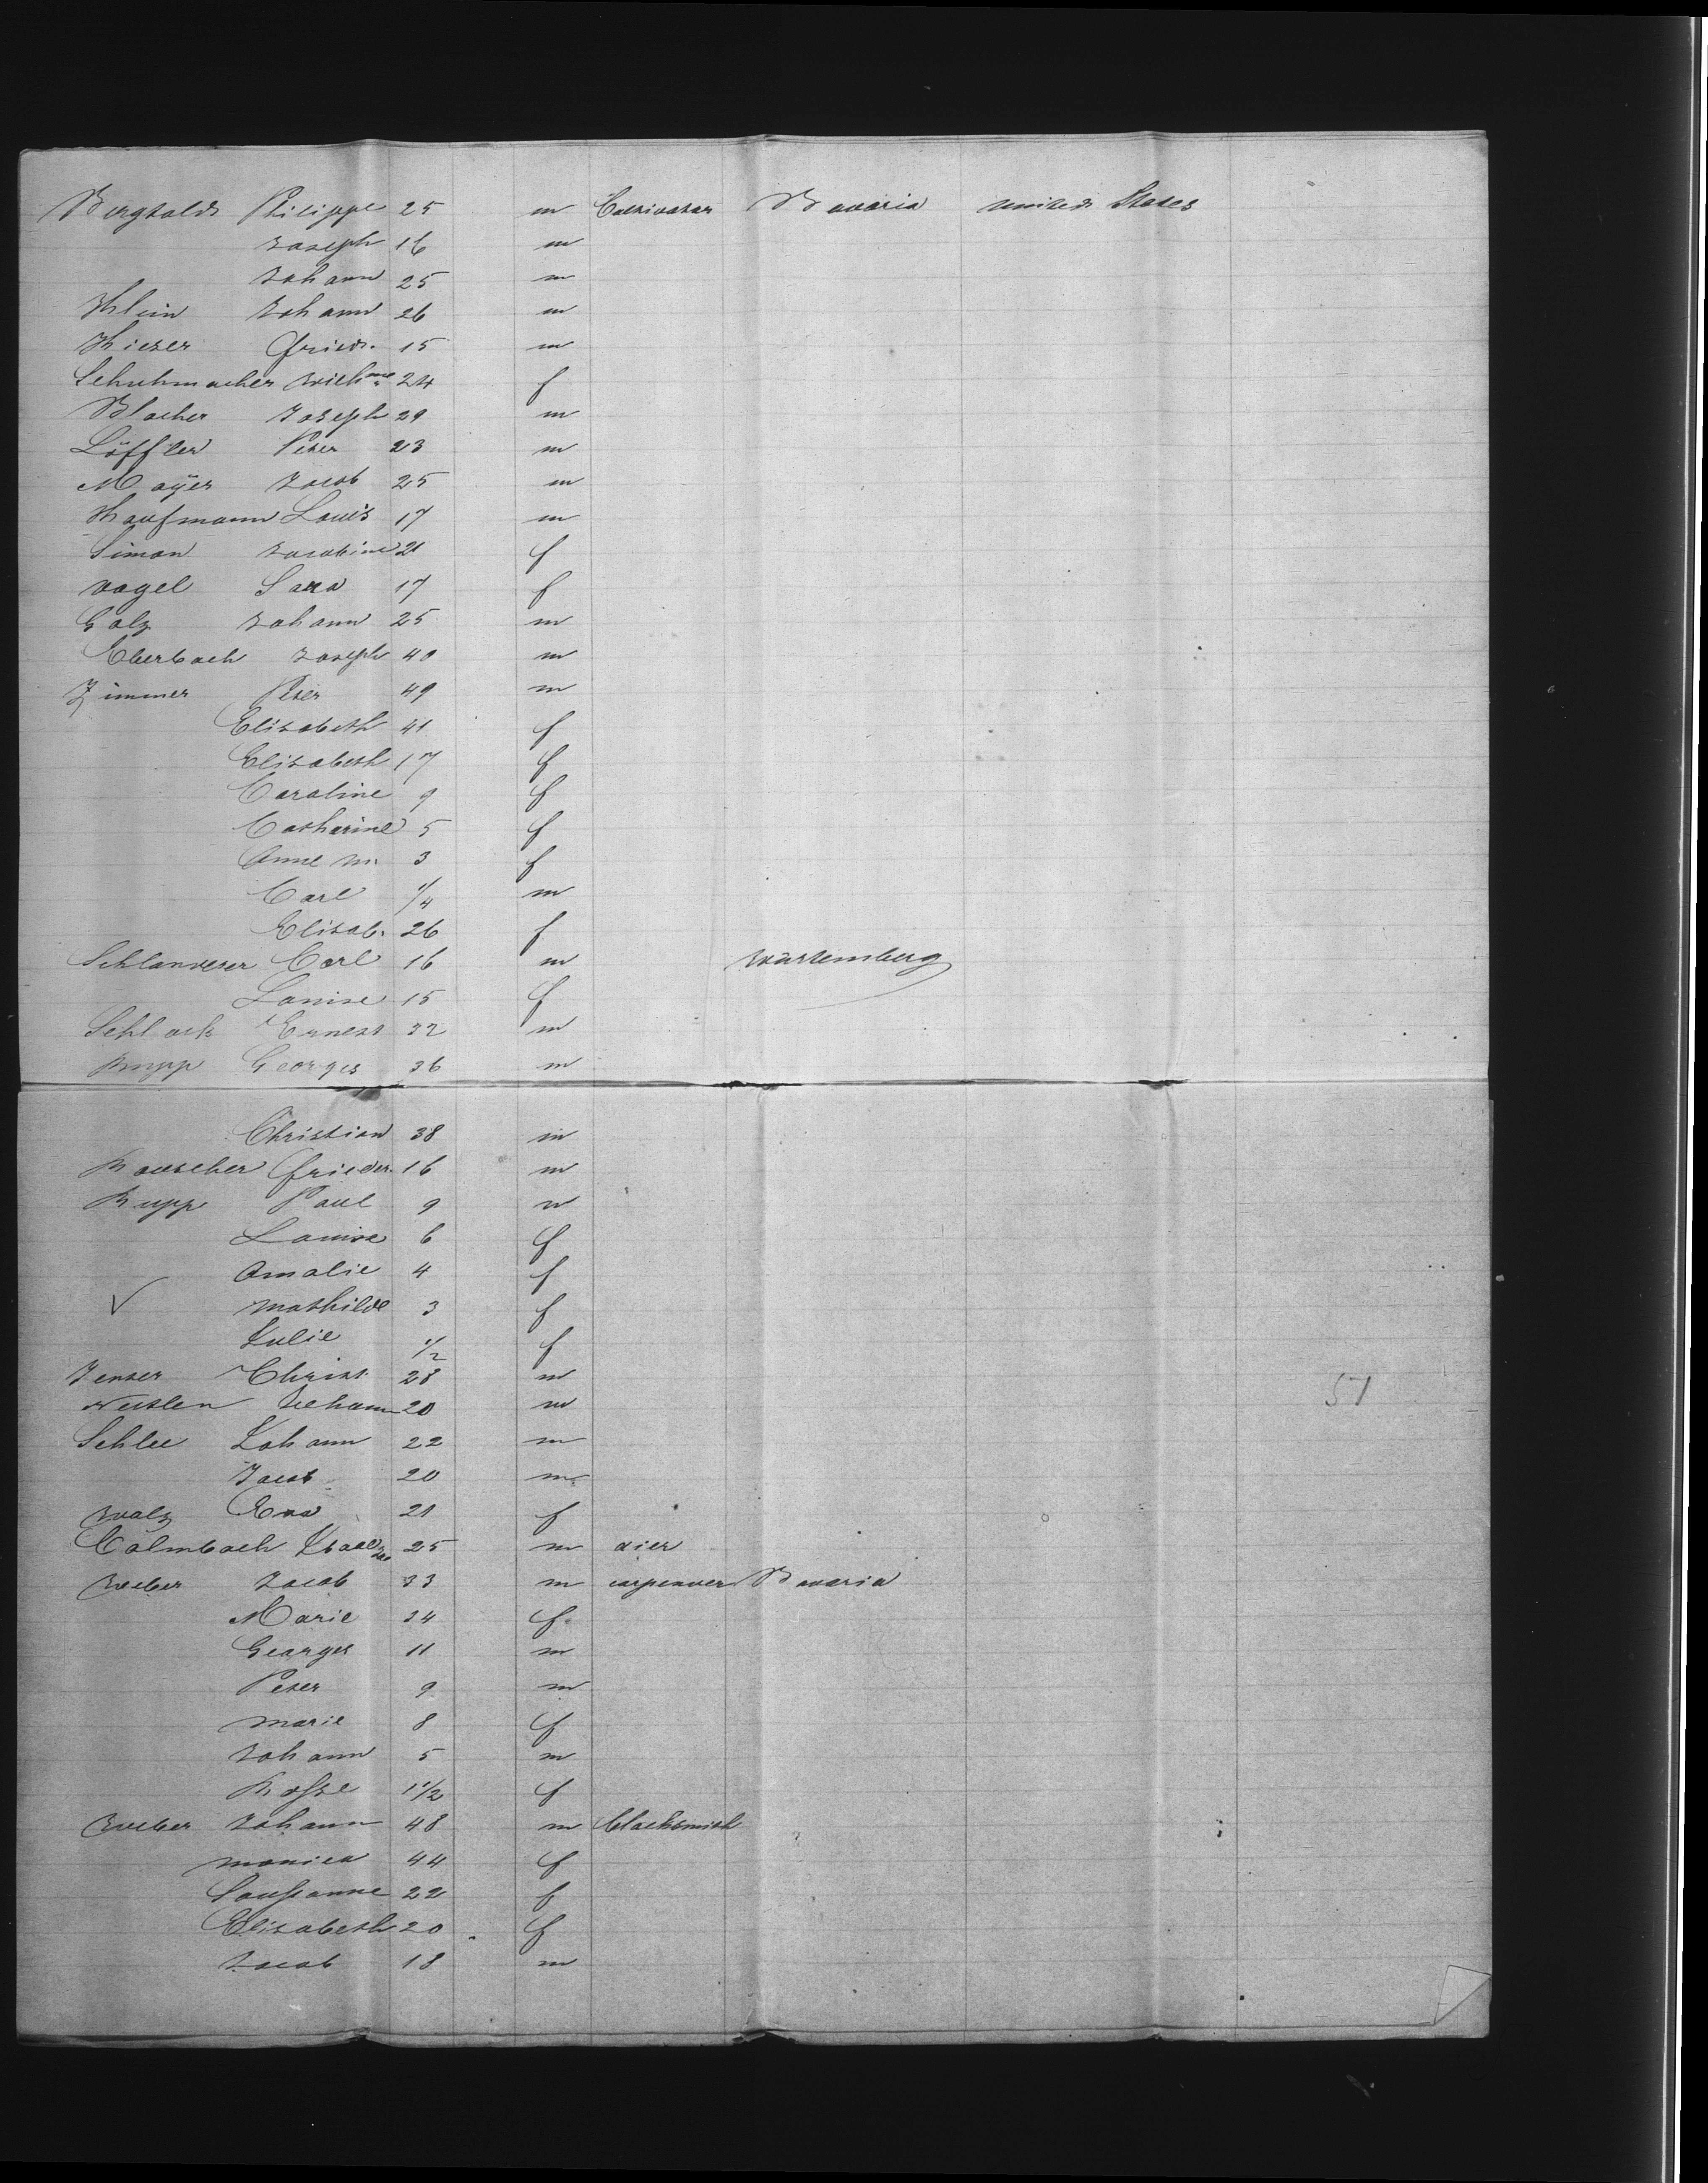 Bergtold Philippe 25 m Cultivator Bavaria united States
Joseph 16 m
Johann 25 m
Klein Johann 26 m
Kieser Friedr. 15 m
Schuhmacher Wilhme 24 f
Blocher Joseph 29 m
Löffler Peter 23 m
Mayer Jacob 25 m
Kaufmann Louis 17 m
Simon Jacobine 21 f
Vogel Sara 17 f
Golz Johann 25 m
Eberbach Joseph 40 m
Zimmer Peter 49 m
Elisabeth 41 f
Elisabeth 17 f
Caroline 9 f
Catharine 5 f
Anne M. 3 f
Carl 1/4 m
Elisab. 26 f
Schlanderer Carl 16 m Würtemberg
Louise 15 f
Schlack Ernest 32 m
Rupp Georges 36 m
Christian 38 m
Rauscher Frieder. 16 m
Rupp Paul 9 m
Louise 6 f
Amalie 4 f
✓ Mathilde 3 f
Julie 1/2 f
Christ. 28 m
20 m
51
Schlee Johann 22 m
Jacob 20 m
Walz Eva 21 f
Calmbach 25 m dier
Weber Jacob 33 m carpenter Bavaria
Marie 34 f
Georges 11 m
Peter 9 m
Marie 8 f
Johann 5 m
1 1/2 f
Weber Johann 48 m blacksmith
Monica 44 f
Saussanne 22 f
Elisabeth 20 f
Jacob 18 m